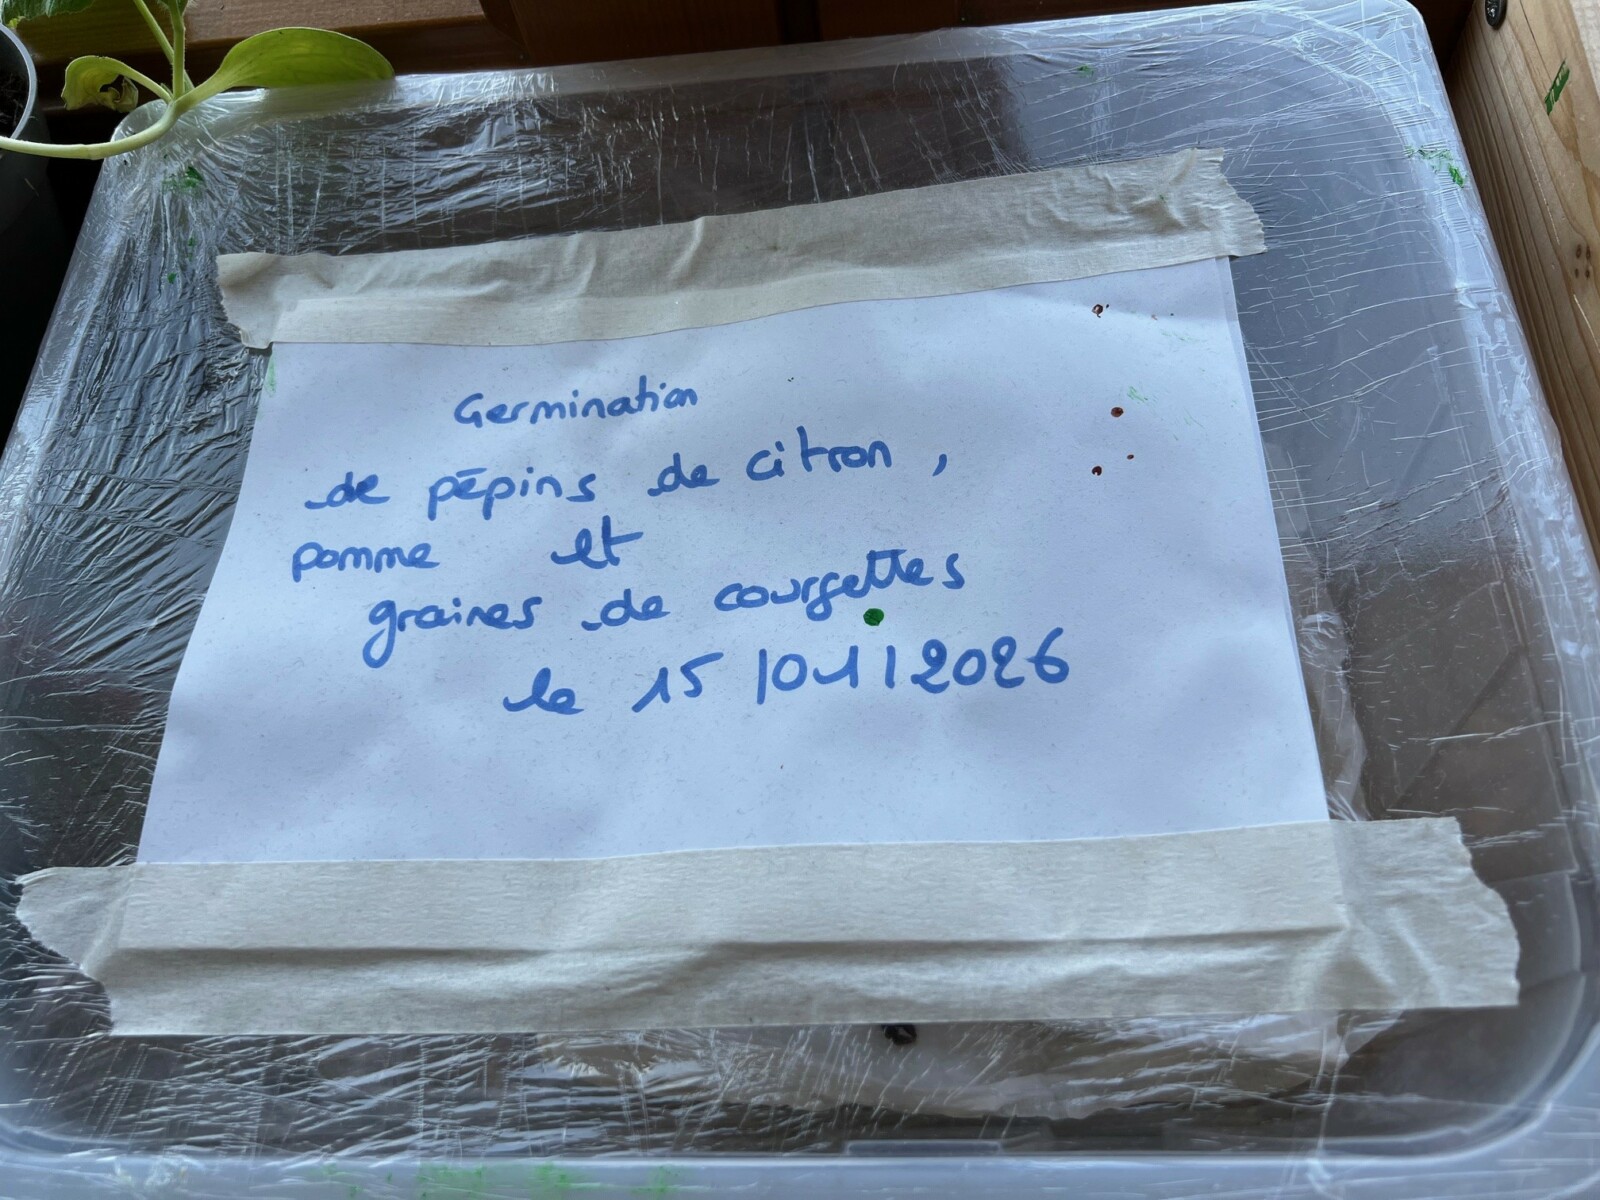 Germination
de pépins de citron,
pomme et
graines de courgettes
le 15/01/2026